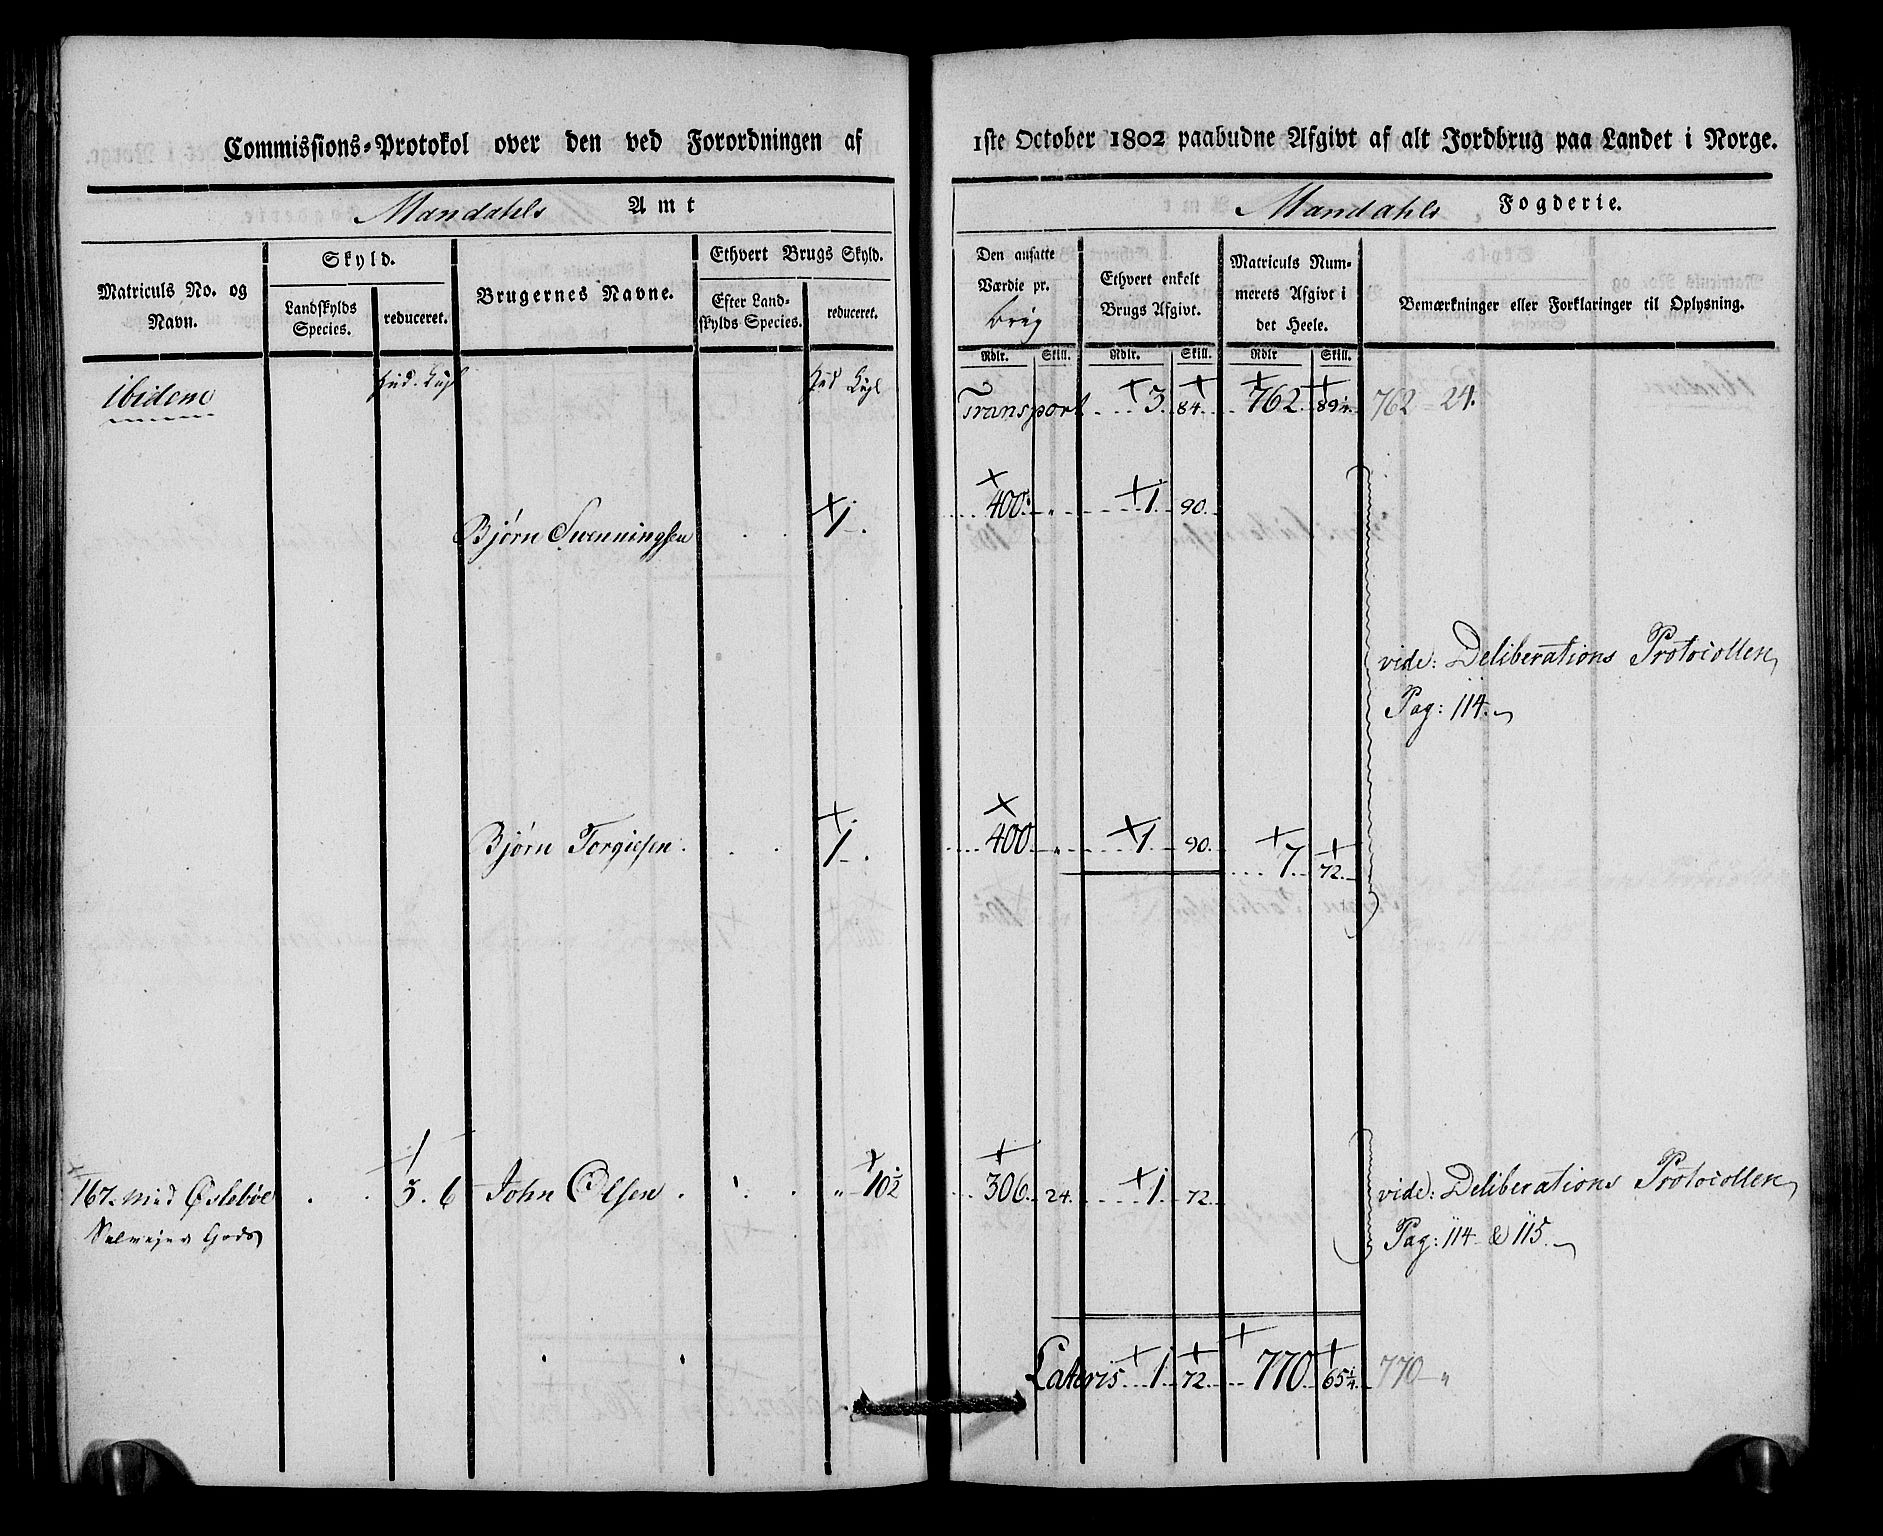 Commissions-Protokol over den ved Forordningen af 1ste October 1802 paabudne Afgivt af alt Jordbrug paa Landet i Norge.
Mandahls Amt
Mandahls Fogderie.
Matriculs No. og Navn.
Skyld.
Landskylds Species.
reduceret.
Brugernes Navne.
Ethvert Brugs Skyld.
Efter Landskylds Species.
reduceret.
Den ansatte Værdie pr. brug
Ethvert enkelt Brugs Afgivt.
Matriculs Nummerets Afgivt i det Heele.
Bemærkninger eller Forklaringer til Oplysning.
Rdlr. Skill. Rdlr. Skill. Rdlr Skill.
Ibidem
Transport 3. 84. 762. 89¼. 762 24.
Bjørn Svenningsen 1. 400. „ 1. 90.
vide: Deliberations Protocollen
Pag: 114.
Bjørn Torgiesen. 1. 400 „ 1. 90. 7. 72.
167. Øslebøe 3. 6 John Olsen. „ 10½ 306. 24. 1. 72.
Selvejer Gods
vide: Deliberations Protocollen
Pag: 114 & 115.
Lateris 1. 72. 770. 65¼. 770 „